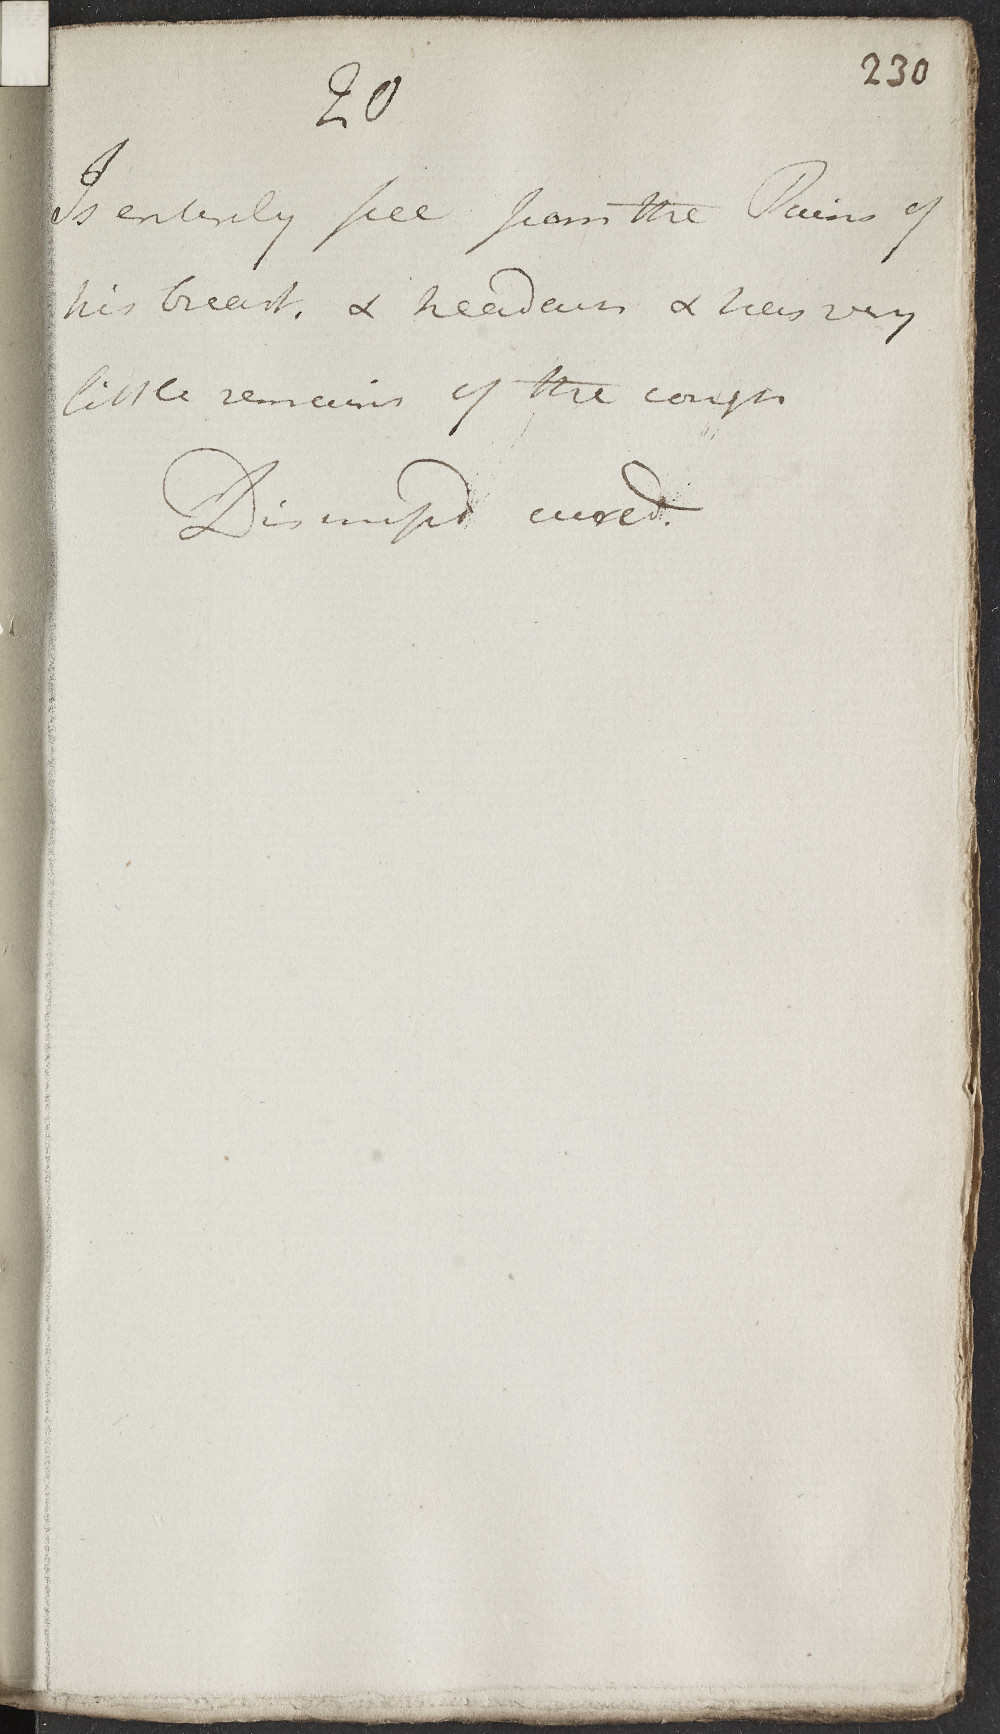 230
20
Is entirely free from the Pains of
his breast, & headach & has very
little remains of the cough
Dismissd cured.